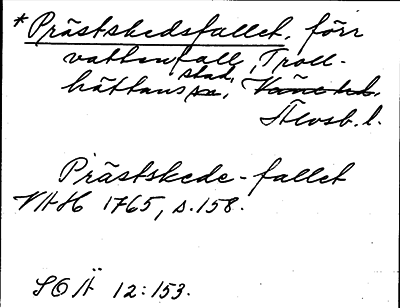 * Prästskedsfallet, förr
vattenfall, Troll-
hättans stad, Väne hd,
Älvsb. l.
Prästskede-fallet
VAH 1765, s. 158.
SOÄ 12:153.